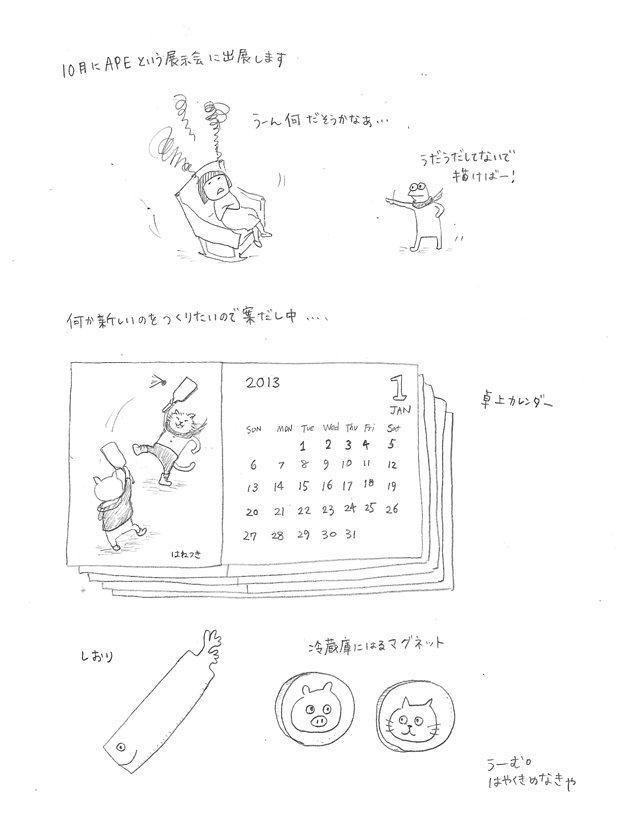 10月にAPEという展示会に出展します
うーん何だそうかなぁ・・・
うだうだしてないで
描けばー!
何か新しいのをつくりたいので案だし中 ・・・・
卓上カレンダー
2013
1
JAN
SUN MON TUE Wed Thu Fri Sat
1 2 3 4 5
6 7 8 9 10 11 12
13 14 15 16 17 18 19
20 21 22 23 24 25 26
27 28 29 30 31
はねつき
しおり
冷蔵庫にはるマグネット
うーむ。
はやくきめなきゃ